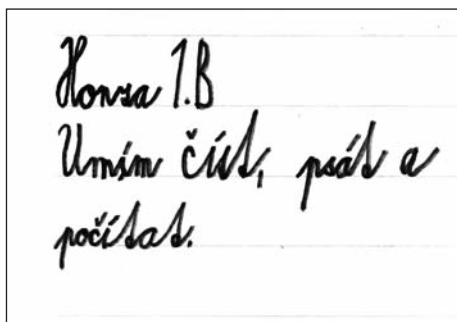 Honza 1.B
Umím číst, psát a
počítat.